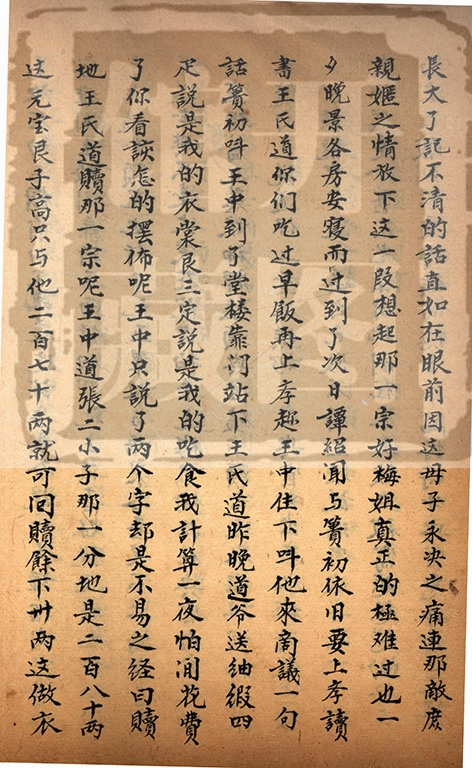 長大了記不清的話直如在眼前因这母子永决之痛連那敵庶
親之情放下这一段想起那一宗好梅姐真正的極难过也一
夕晚景各房安寝而过到了次日譚紹聞与簣初依旧要上孝讀
書王氏道你们吃过早飯再上孝趂王中住下呌他來商議一句
話簣初呌王中到了堂楼靠门站下王氏道昨晚道爷送紬緞四
疋説是我的衣裳艮三定説是我的吃食我計算一夜怕闲花費
了你看該怎的擺佈呢王中只説了两个字却是不易之经曰贖
地王氏道贖那一宗呢王中道張二小子那一分地是二百八十两
这元宝艮子高只与他二百七十两就可回贖餘下卅两这做衣